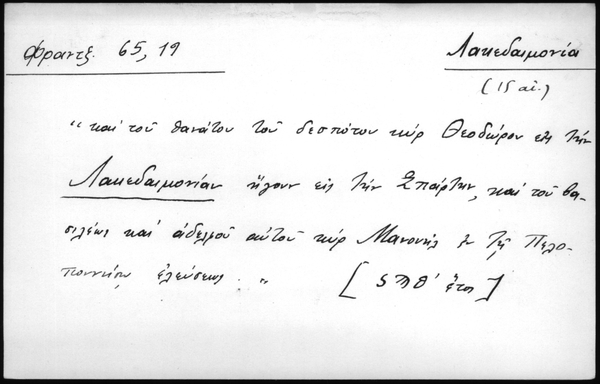 Φραντζ. 65, 19
Λακεδαιμονία
(15 αἰ.)
"καὶ τοῦ θανάτου τοῦ δεσπότου κὺρ Θεοδώρου εἰς τὴν
Λακεδαιμονίαν ἤγουν εἰς τὴν Σπάρτην, καὶ τοῦ βα-
σιλέως καὶ ἀδελφοῦ αὐτοῦ κὺρ Μανουὴλ ἐν τῇ Πελο-
ποννήσῳ ἐλεύσεως." [ ἔτος ]